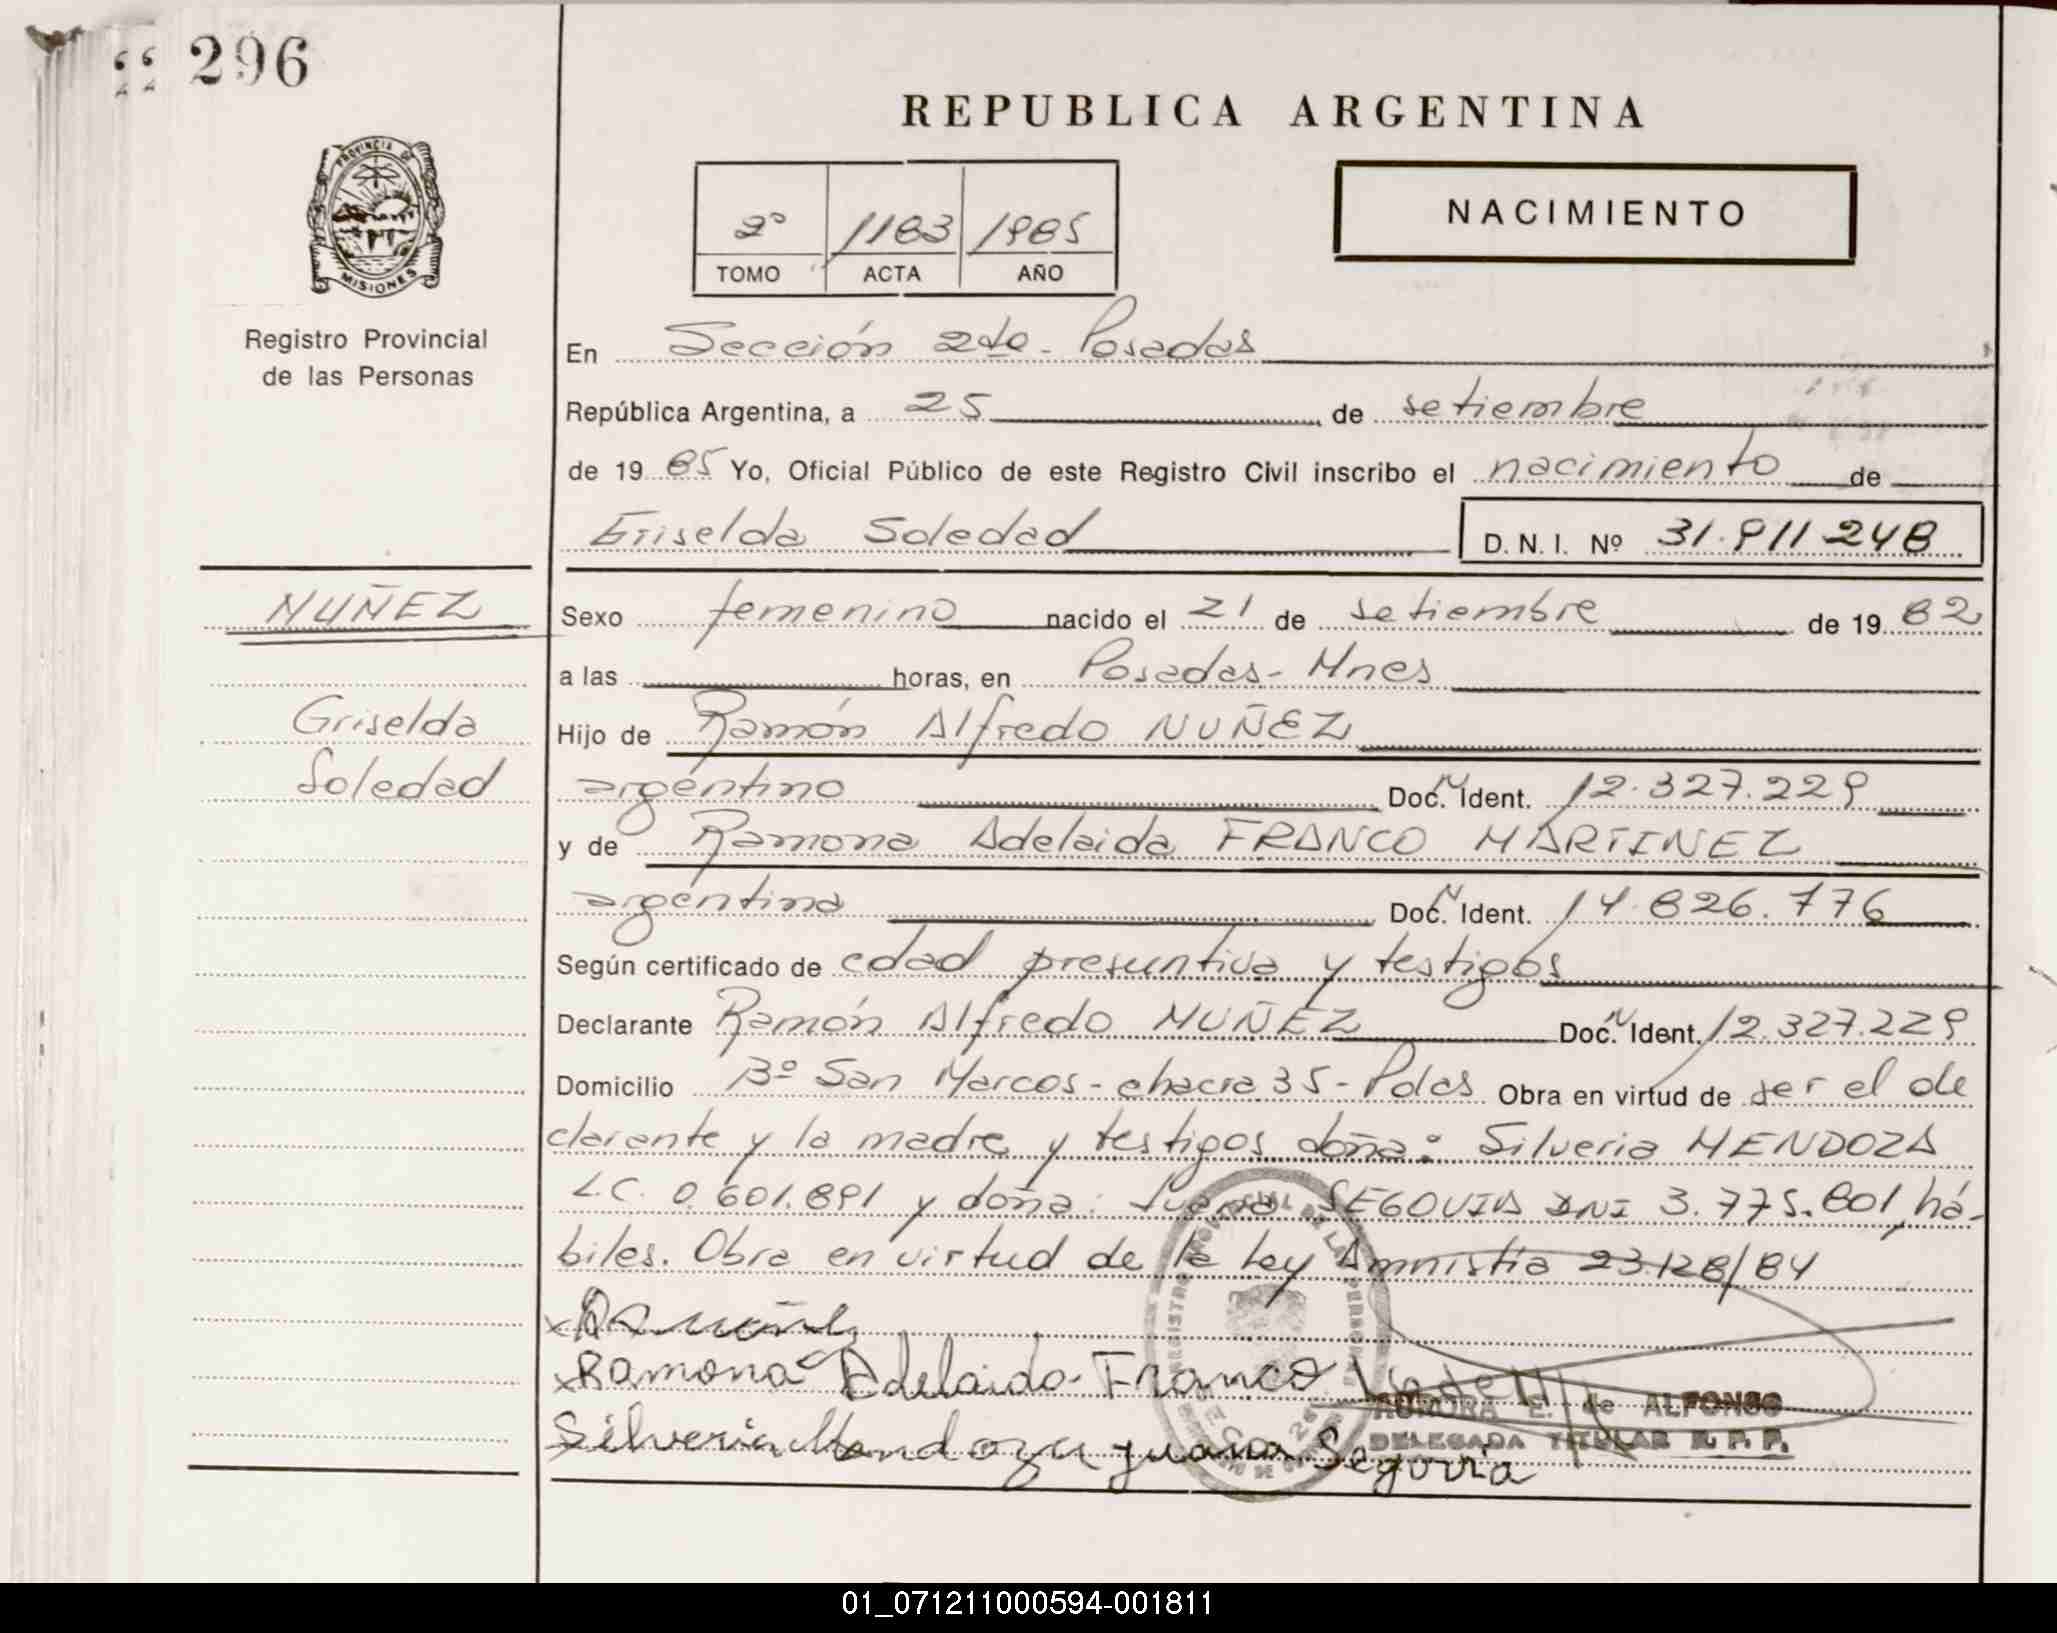 296
REPUBLICA ARGENTINA
PROVINCIA DE MISIONES
2º 1183 1985
TOMO ACTA AÑO
NACIMIENTO
Registro Provincial
de las Personas
En Sección 2da - Posadas
República Argentina, a 25 de setiembre
de 19 85 Yo, Oficial Público de este Registro Civil inscribo el nacimiento de
Griselda Soledad D. N. I. Nº 31.911 248
NUÑEZ
Griselda
Soledad
Sexo femenino nacido el 21 de setiembre de 19 82
a las horas, en Posadas - Mnes
Hijo de Ramón Alfredo NUÑEZ
argentino Doc. N Ident. 12.327.229
y de Ramona Adelaida FRANCO MARTINEZ
argentina Doc. N Ident. 14.826.776
Según certificado de edad presuntiva y testigos
Declarante Ramón Alfredo NUÑEZ Doc. N Ident. 12.327.229
Domicilio Bº San Marcos - chacra 35 - Pdas Obra en virtud de ser el de
clarante y la madre y testigos doña: Silveria MENDOZA
L.C. 0.601.891 y doña: Juana SEGOVIA DNI 3.775.801, há-
biles. Obra en virtud de la Ley Amnistía 23128/84
Ramona Adelaida Franco
AURORA E. de ALFONSO
DELEGADA TITULAR R. P. P.
Silveria Mendoza Juana Segovia
01_071211000594-001811